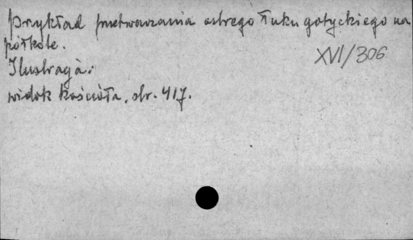 Przykład przetwarzania ostrego łuku gotyckiego na
półkole.
XVI/306
Ilustracja:
widok kościoła, str. 417.